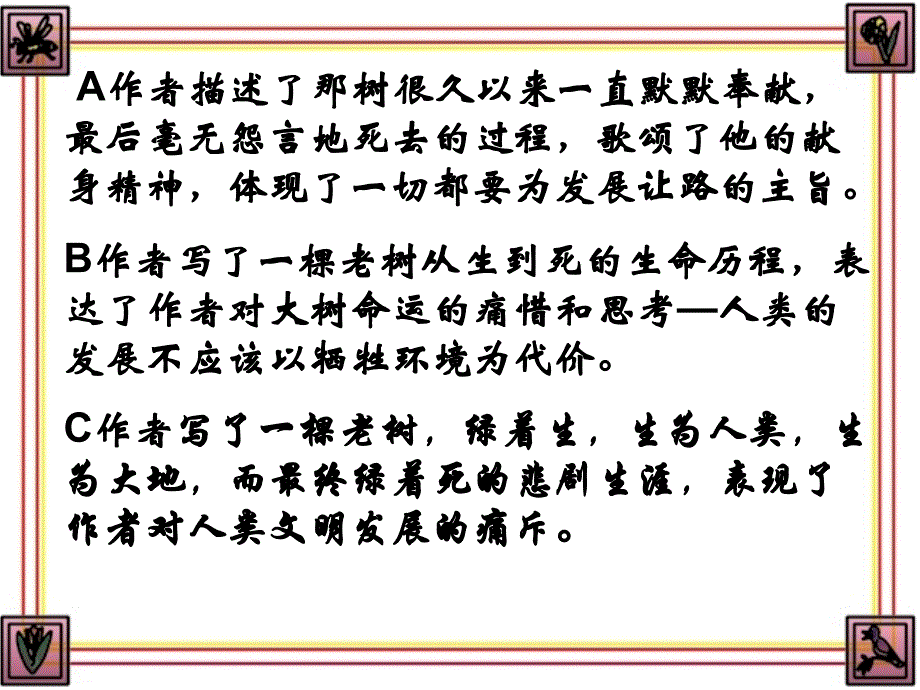 A作者描述了那树很久以来一直默默奉献，
最后毫无怨言地死去的过程，歌颂了他的献
身精神，体现了一切都要为发展让路的主旨。
B作者写了一棵老树从生到死的生命历程，表
达了作者对大树命运的痛惜和思考—人类的
发展不应该以牺牲环境为代价。
C作者写了一棵老树，绿着生，生为人类，生
为大地，而最终绿着死的悲剧生涯，表现了
作者对人类文明发展的痛斥。